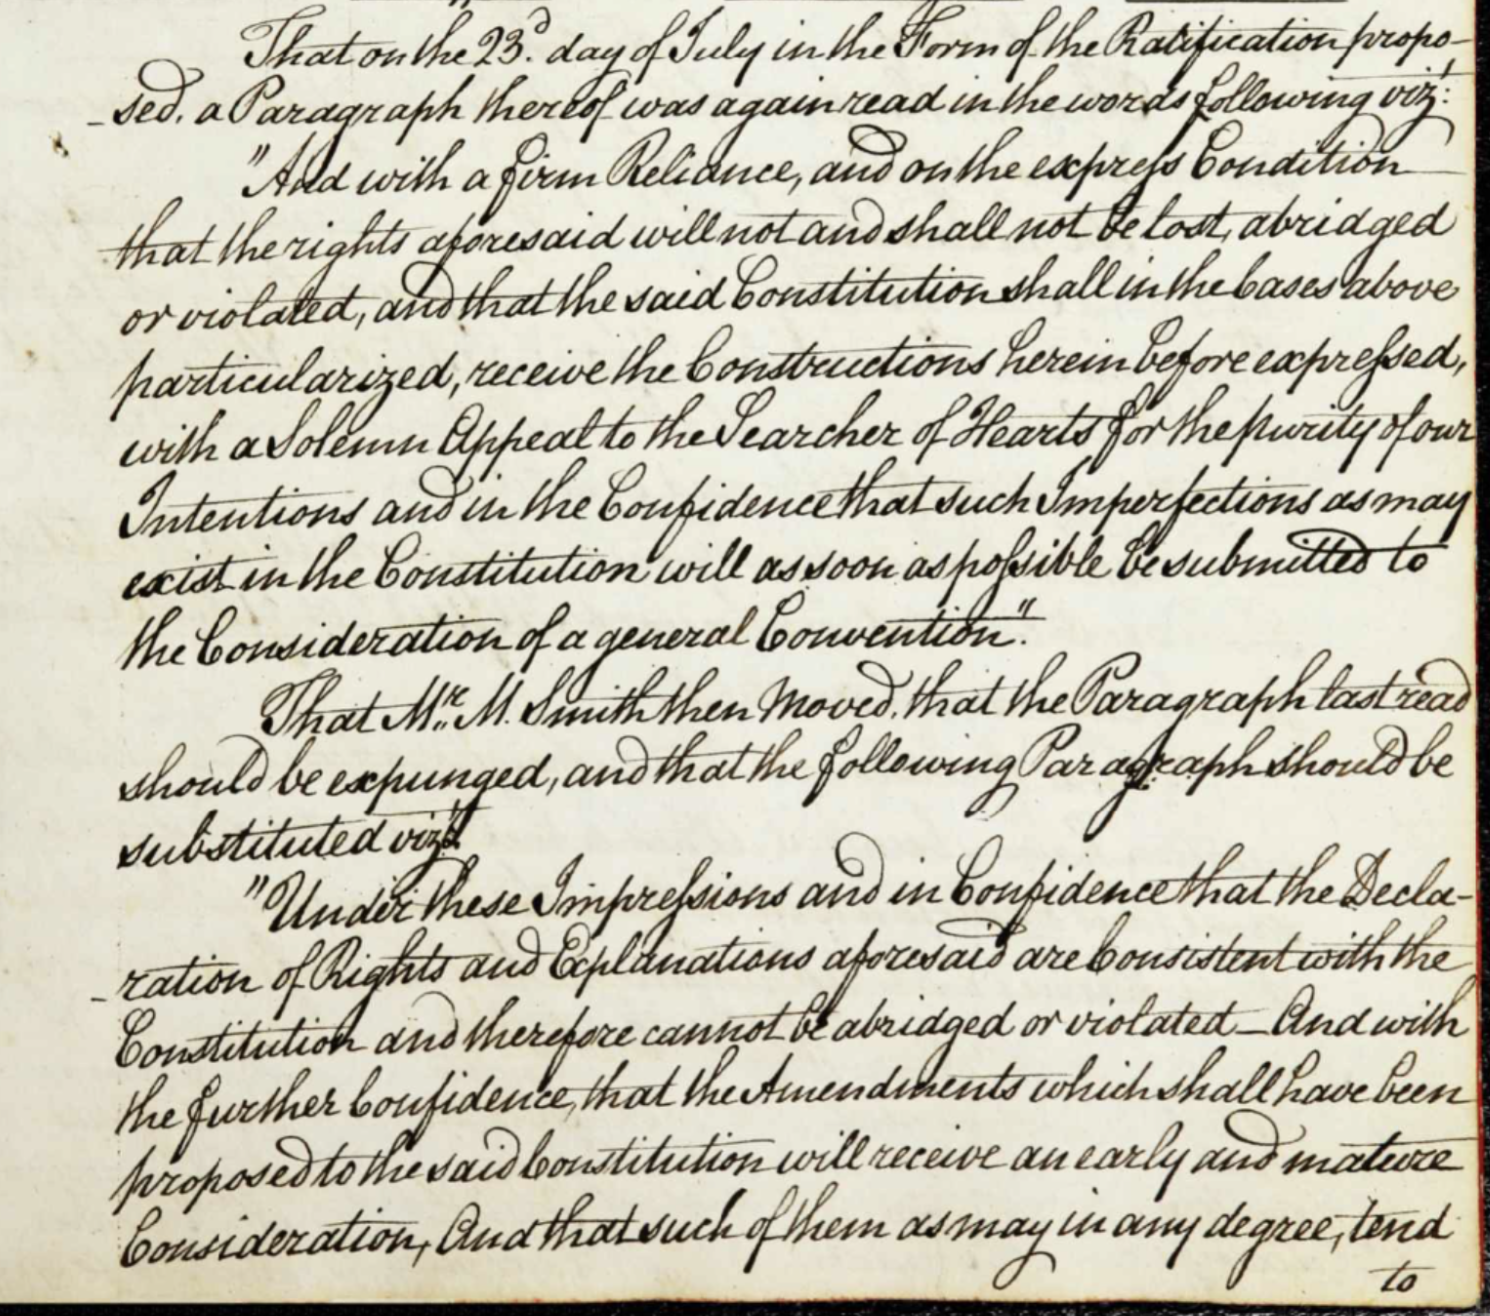 That on the 23.d day of July in the Form of the Ratification propo-
-sed, a Paragraph thereof was again read in the words following viz.t
"And with a firm Reliance, and on the express Condition
that the rights aforesaid will not and shall not be lost, abridged
or violated, and that the said Constitution shall in the Cases above
particularized, receive the Constructions herein before expressed,
with a Solemn Appeal to the Searcher of Hearts for the purity of our
Intentions and in the Confidence that such Imperfections as may
exist in the Constitution will as soon as possible be submitted to
the Consideration of a general Convention".
That Mr. M. Smith then moved, that the Paragraph last read
should be expunged, and that the following Paragraph should be
substituted viz.t
"Under these Impressions and in Confidence that the Decla-
-ration of Rights and Explanations aforesaid are Consistent with the
Constitution and therefore cannot be abridged or violated — And with
the further Confidence, that the Amendments which shall have been
proposed to the said Constitution will receive an early and mature
Consideration, And that such of them as may in any degree, tend
to